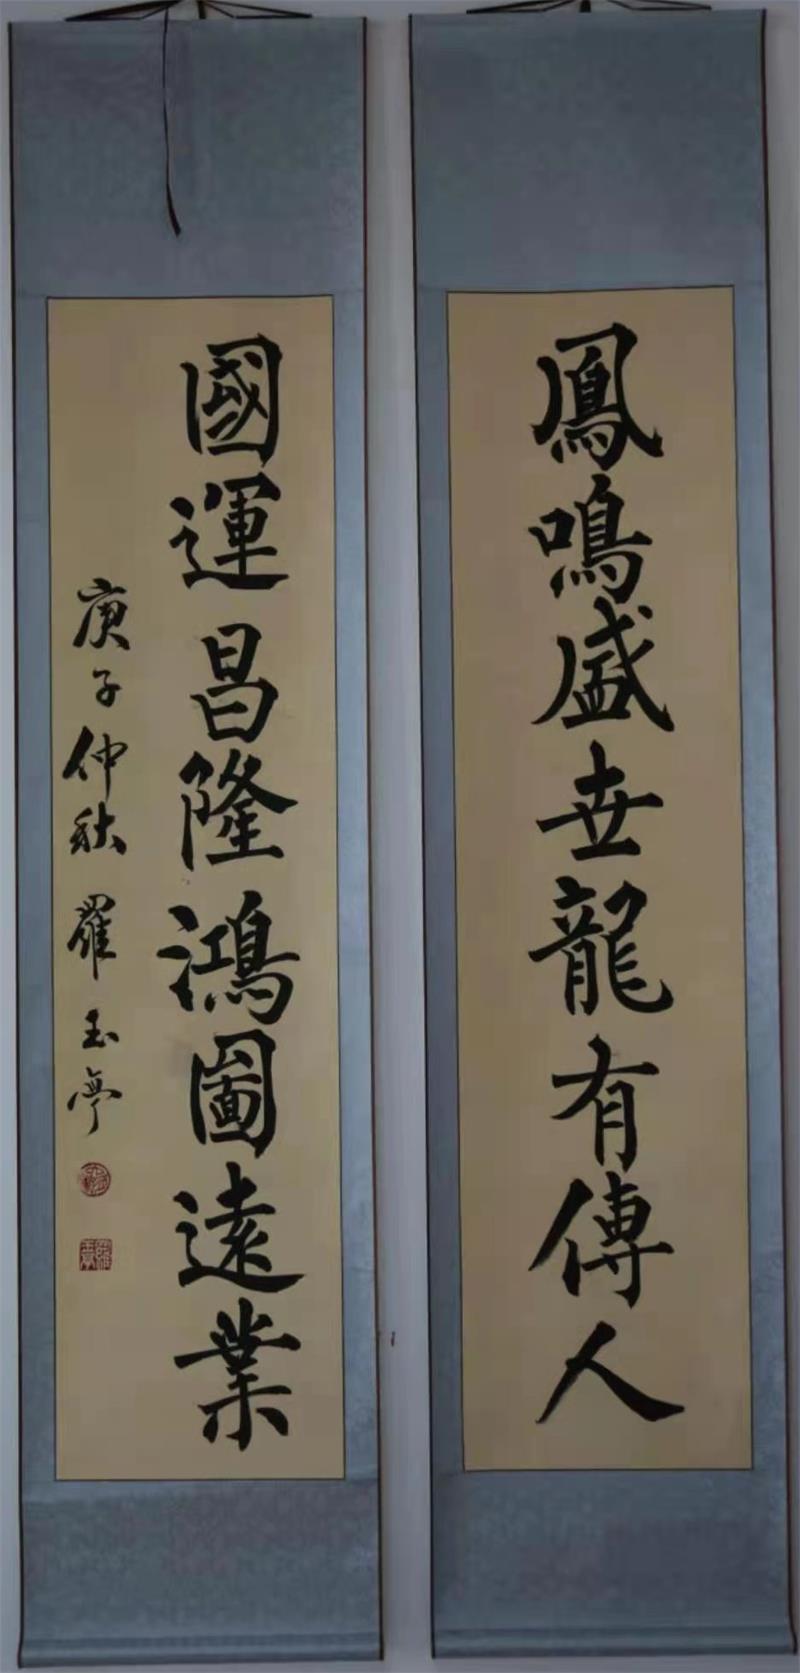 鳳鳴盛世龍有傳人
國運昌隆鴻圖遠業
庚子仲秋 羅玉亭